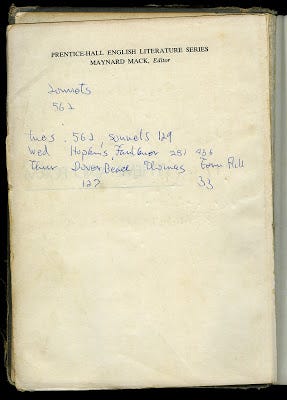 PRENTICE-HALL ENGLISH LITERATURE SERIES
MAYNARD MACK, Editor
Sonnets
562
Tues. 562, Sonnets 129
Wed Hopkins, Faulkner 281 436
Thur Dover Beach Thomas Fern Hill
127 33